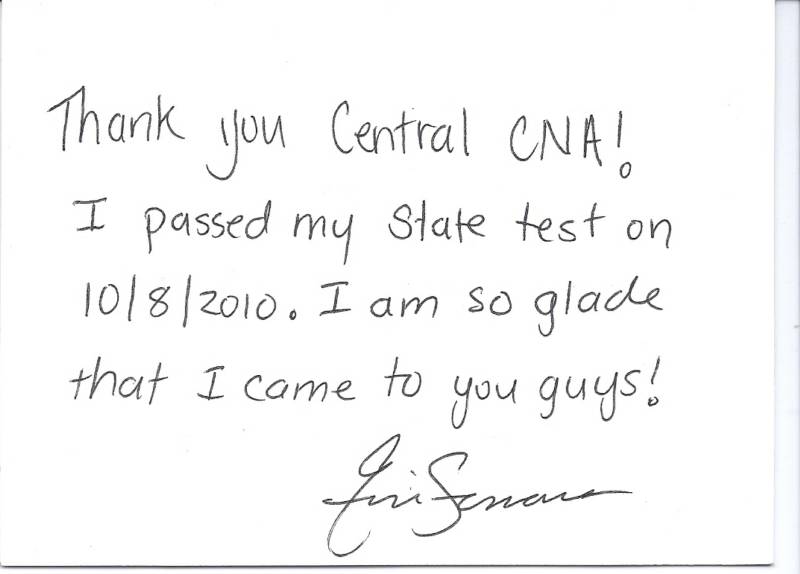 Thank you Central CNA!
I passed my state test on
10/8/2010. I am so glade
that I came to you guys!